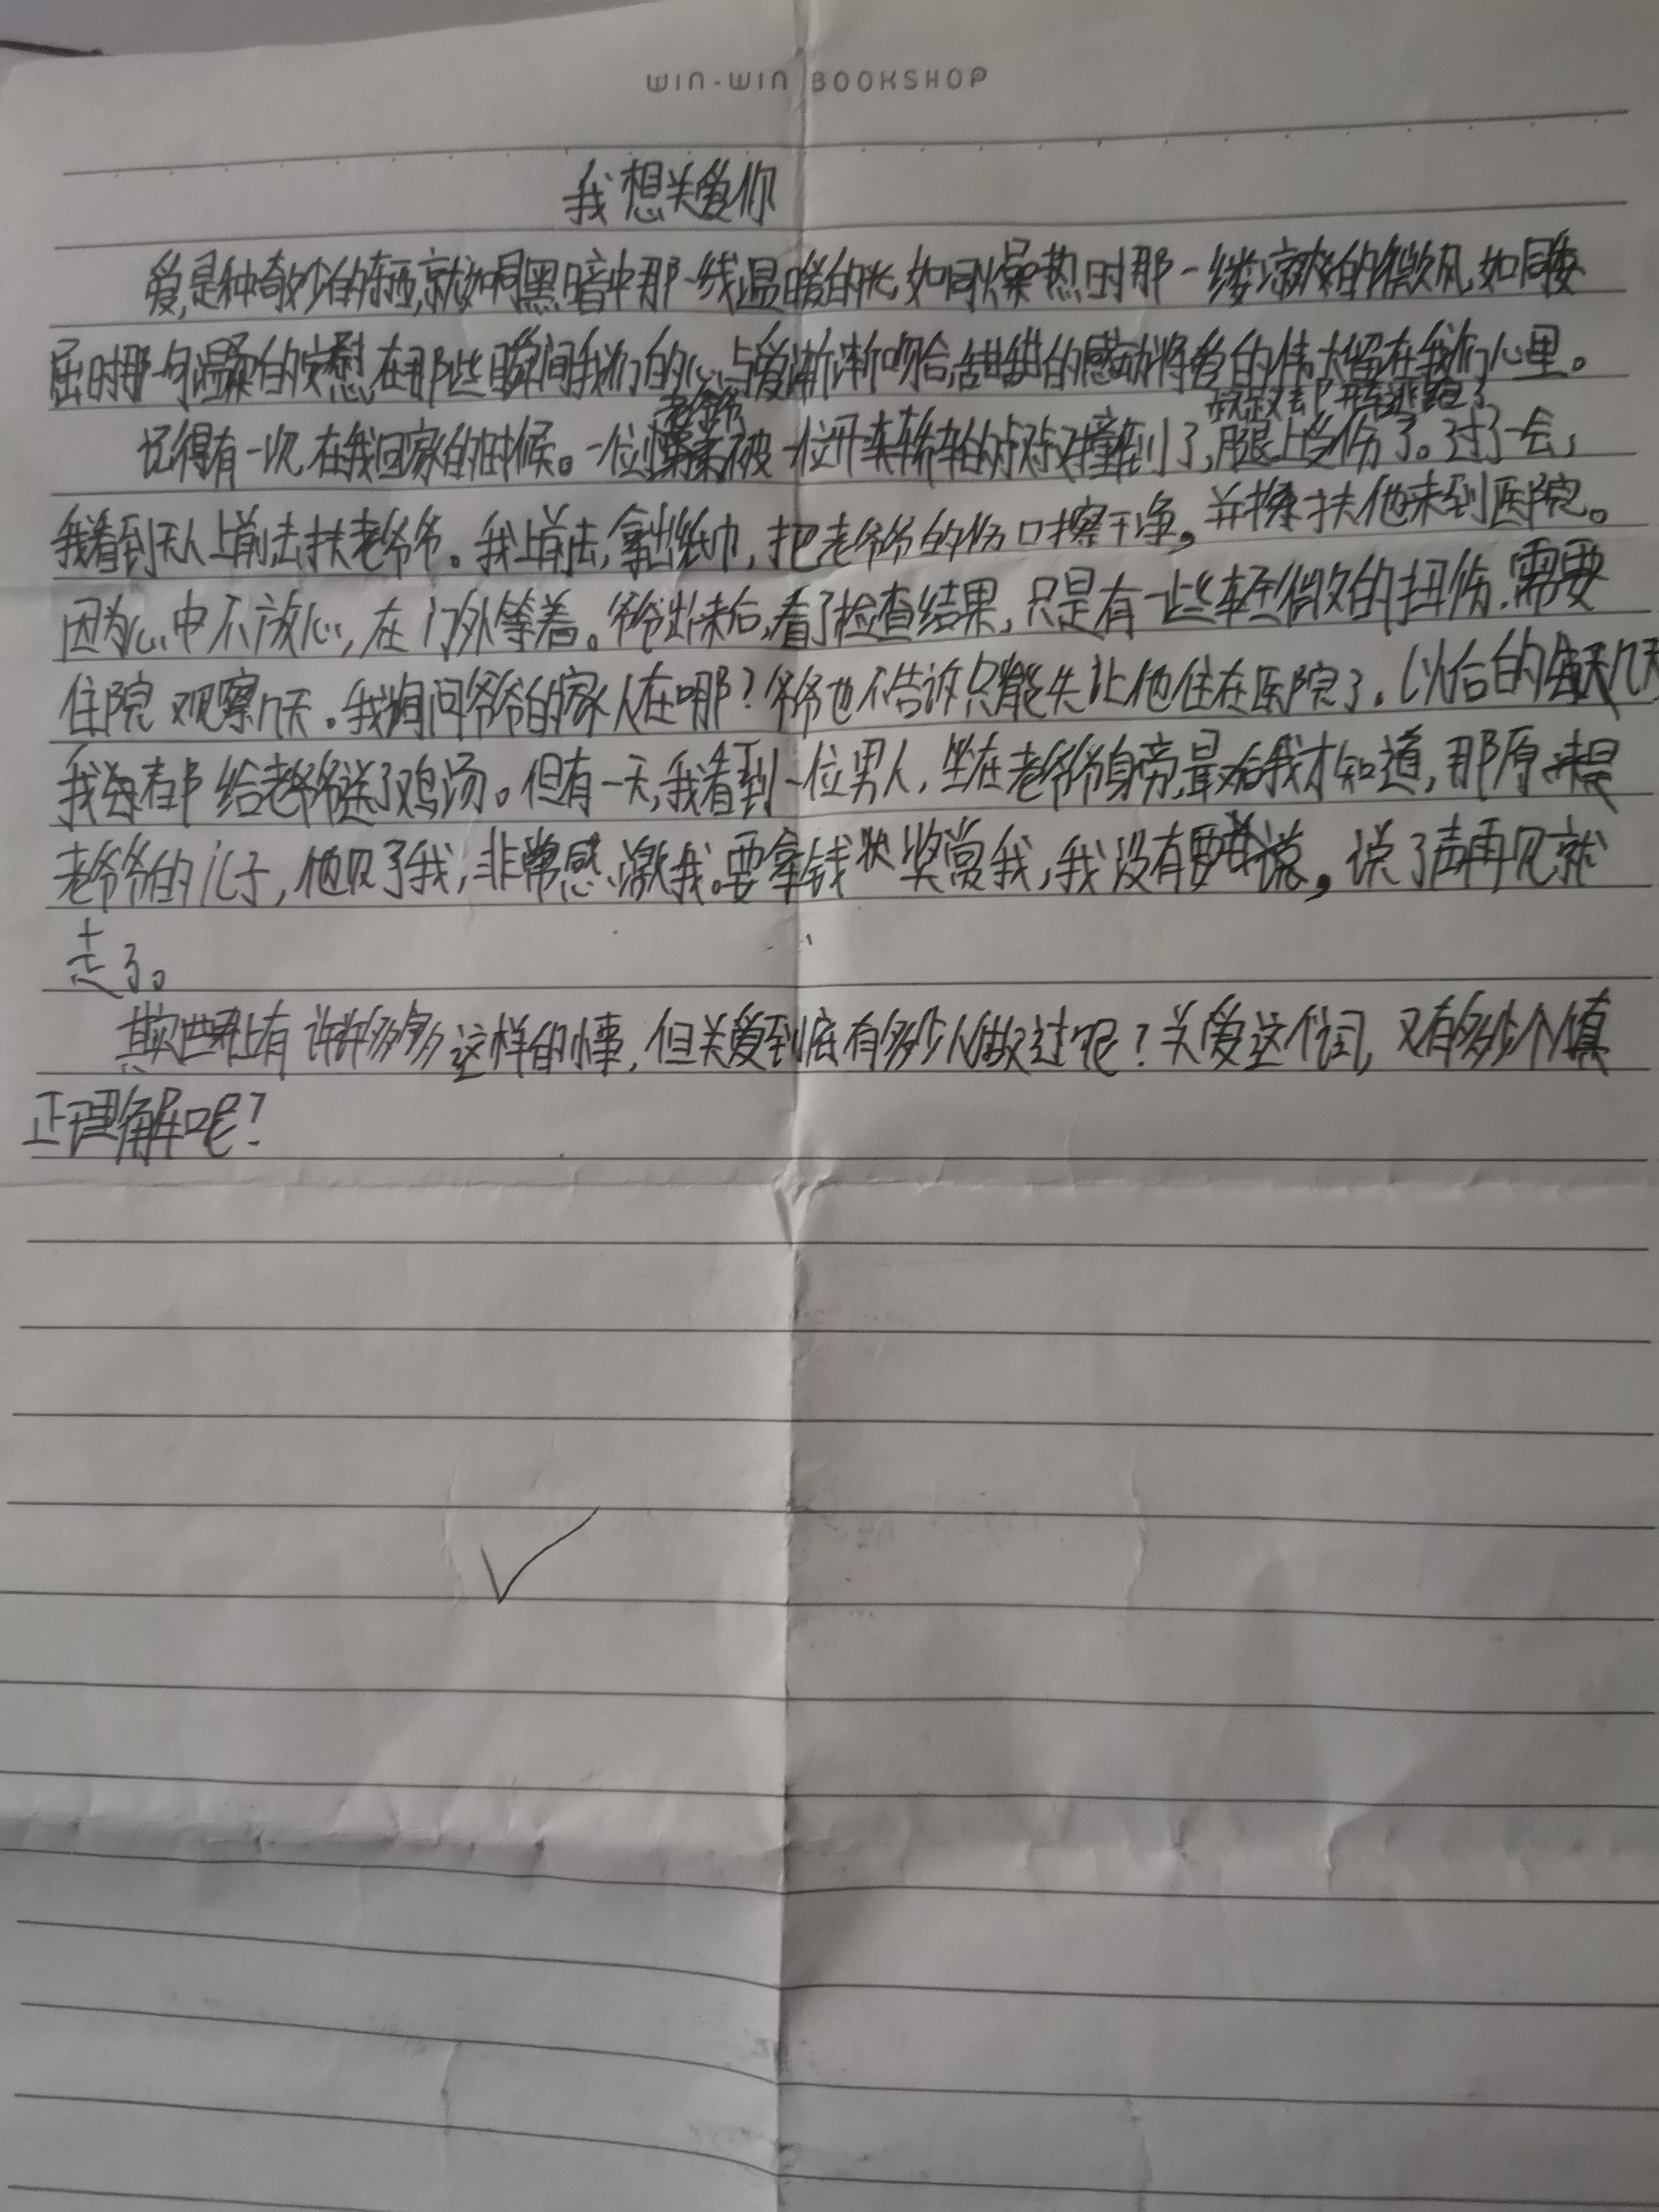 WIN-WIN BOOKSHOP
我想关爱你
爱,是种奇妙的东西,就如同黑暗中那一线温暖的光,如同燥热时那一缕凉爽的微风,如同委
屈时那一句温柔的安慰,在那些瞬间我们的心与爱渐渐吻合,甜甜的感动将爱的伟大留在我们心里。
老爷爷 叔叔却开车逃跑了
记得有一次,在我回家的时候。一位被一位开车的撞到了,腿上受伤了。过了一会,
我看到无人上前去扶老爷爷。我上前去,拿出纸巾,把老爷爷的伤口擦干净。并搀扶他来到医院。
因为心中不放心,在门外等着。爷爷出来后,看了检查结果,只是有一些轻微的扭伤.需要
住院观察几天。我询问爷爷的家人在哪?爷爷也不告诉只能先让他住在医院了。以后的每天几天
我每都给老爷爷送了鸡汤。但有一天,我看到一位男人,坐在老爷爷身旁,最后我才知道,那原来是
老爷爷的儿子,他见了我,非常感激我。要拿钱奖赏我,我没有要,说了声再见就
走了。
其实世界上有许许多多这样的事,但关爱到底有多少人做过呢?关爱这个词,又有多少个人真
正理解呢?